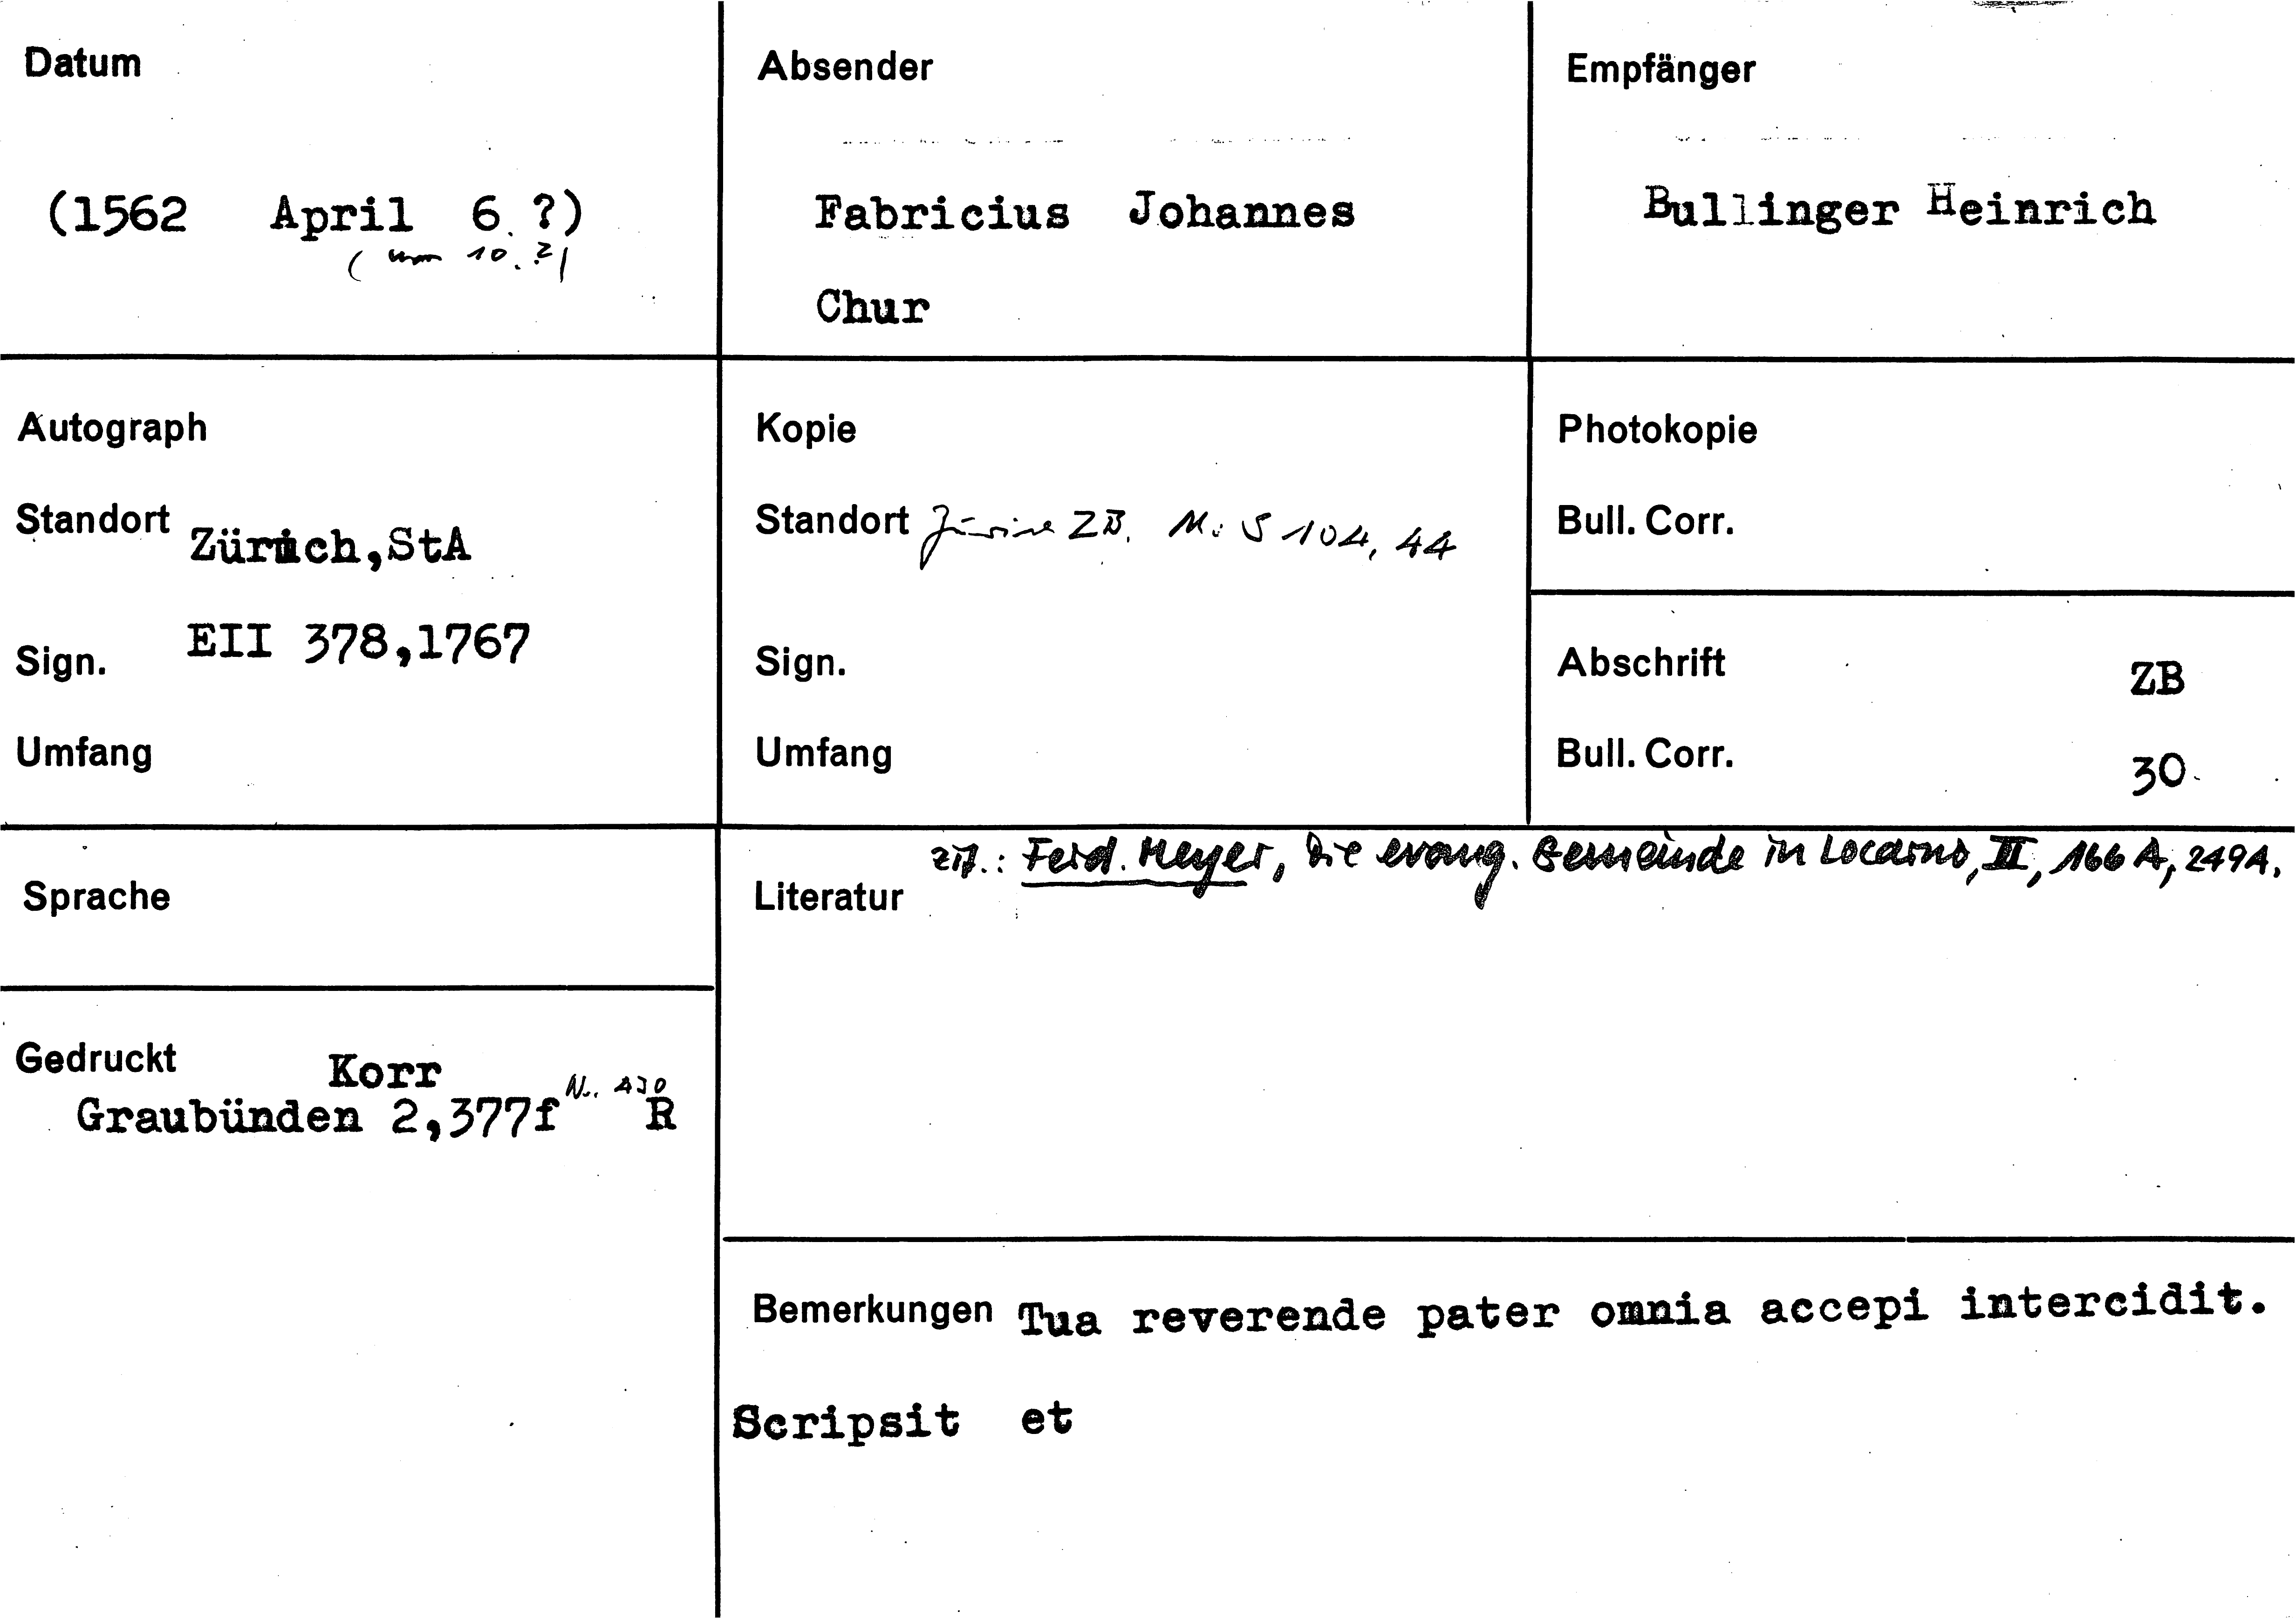 Datum
(1562 April 6.?)
(um 10.?)
Absender
Fabricius Johannes
Chur
Empfänger
Bullinger Heinrich
Autograph
Standort Zürich,StA
Sign. EII 378,1767
Umfang
Kopie
Standort Zürich ZB. Ms S 104, 44
Sign.
Umfang
Photokopie
Bull. Corr.
Abschrift ZB
Bull. Corr. 30
Sprache
Gedruckt Korr
Graubünden 2,377f Nr. 430 R
Literatur zit.: Ferd. Meyer, Die evang. Gemeinde in Locarno, II, 166 A, 249A.
Bemerkungen Tua reverende pater omnia accepi intercidit.
Scripsit et